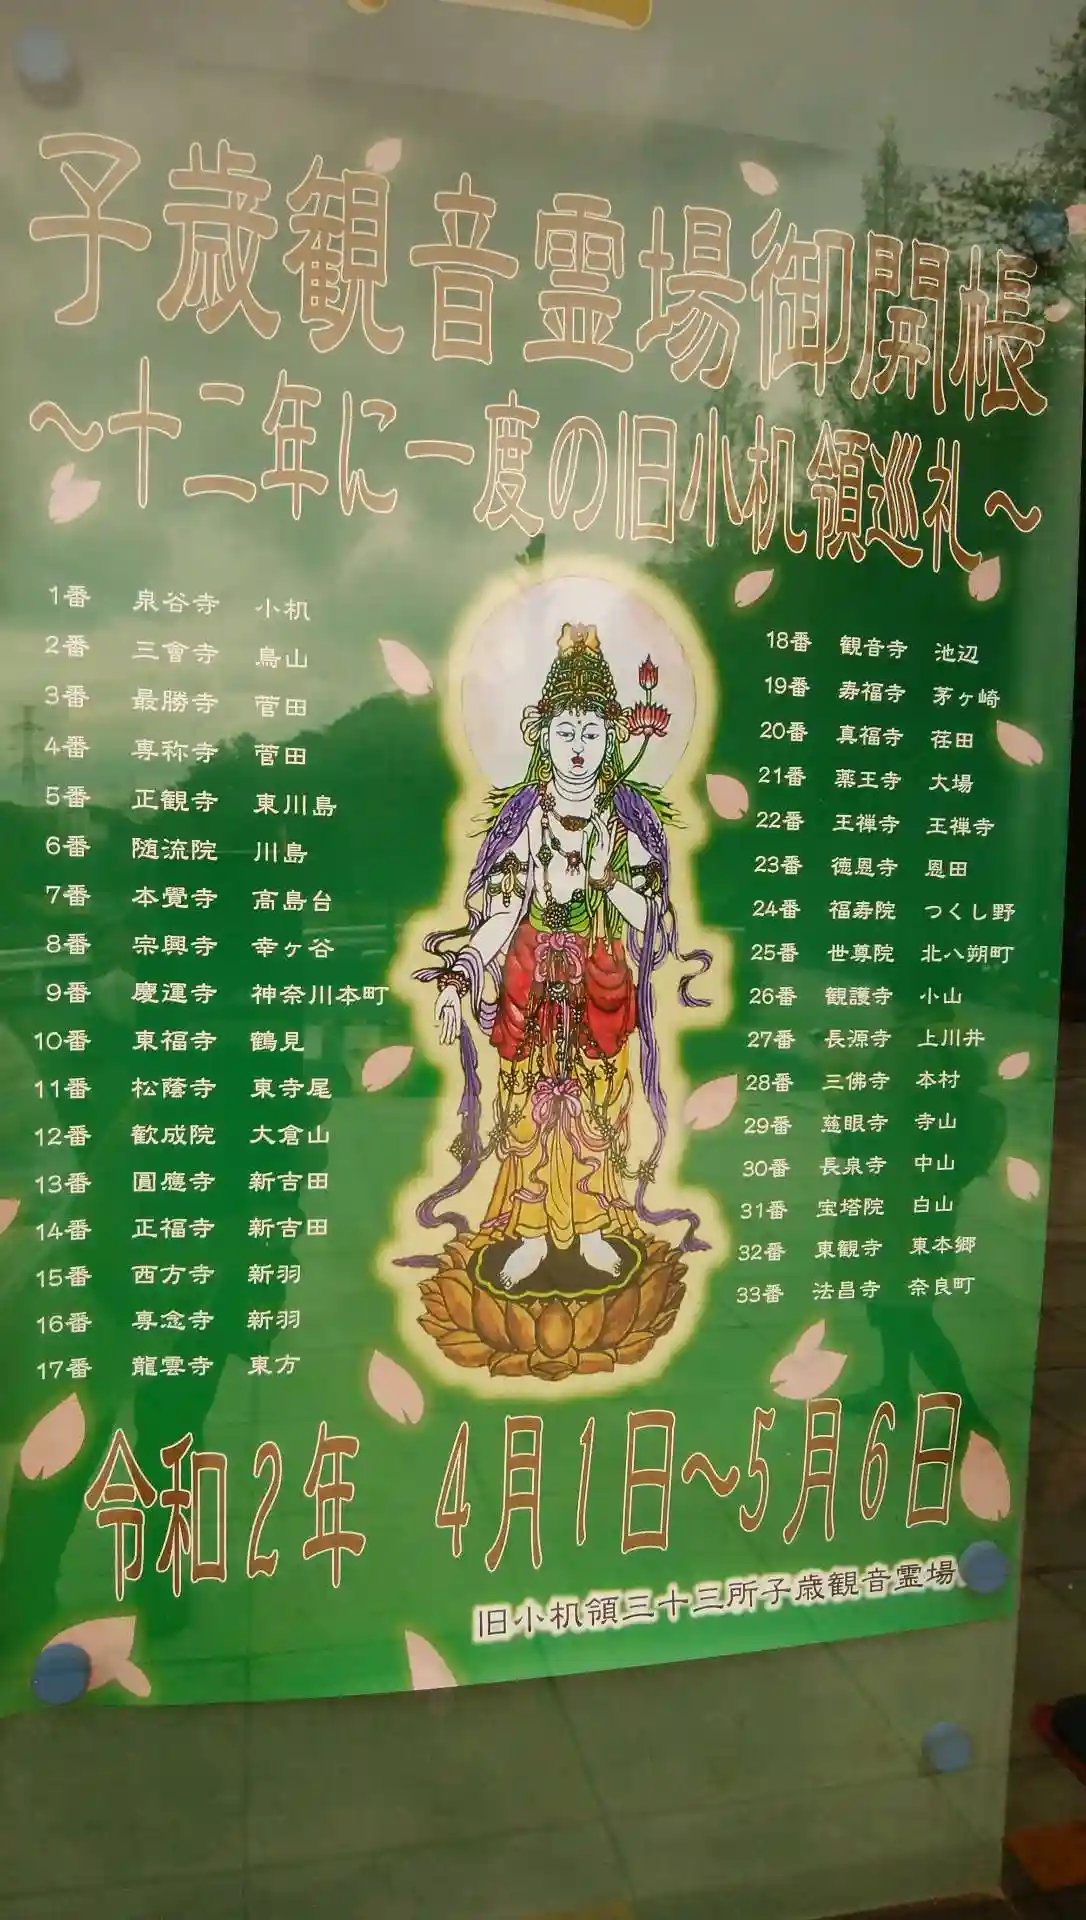 子歳観音霊場御開帳
～十二年に一度の旧小机領巡礼～
1番 泉谷寺 小机
2番 三會寺 鳥山
3番 最勝寺 菅田
4番 専称寺 菅田
5番 正観寺 東川島
6番 随流院 川島
7番 本覺寺 高島台
8番 宗興寺 幸ヶ谷
9番 慶運寺 神奈川本町
10番 東福寺 鶴見
11番 松蔭寺 東寺尾
12番 歓成院 大倉山
13番 圓應寺 新吉田
14番 正福寺 新吉田
15番 西方寺 新羽
16番 専念寺 新羽
17番 龍雲寺 東方
18番 観音寺 池辺
19番 寿福寺 茅ヶ崎
20番 真福寺 荏田
21番 薬王寺 大場
22番 王禅寺 王禅寺
23番 徳恩寺 恩田
24番 福寿院 つくし野
25番 世尊院 北八朔町
26番 観護寺 小山
27番 長源寺 上川井
28番 三佛寺 本村
29番 慈眼寺 寺山
30番 長泉寺 中山
31番 宝塔院 白山
32番 東観寺 東本郷
33番 法昌寺 奈良町
令和2年 4月1日～5月6日
旧小机領三十三所子歳観音霊場